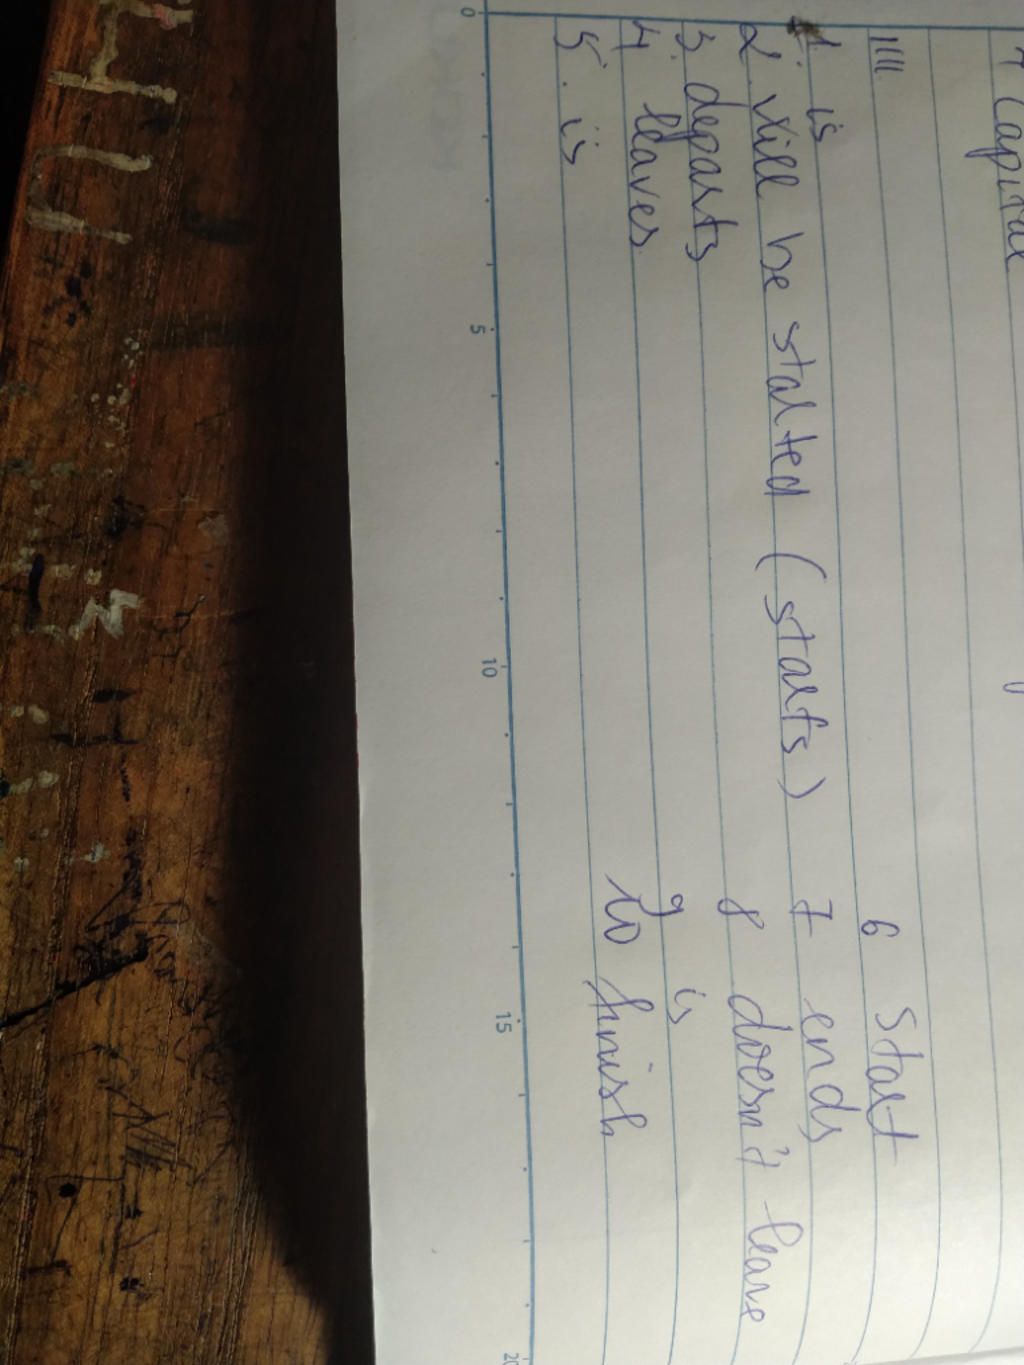 7 Capital
IIII
1. is
2. will be stalted (starts)
3. departs
4 leaves
5. is
6 Start
7 ends
8 doesn't leave
9 is
10 finish
0 5 10 15 20